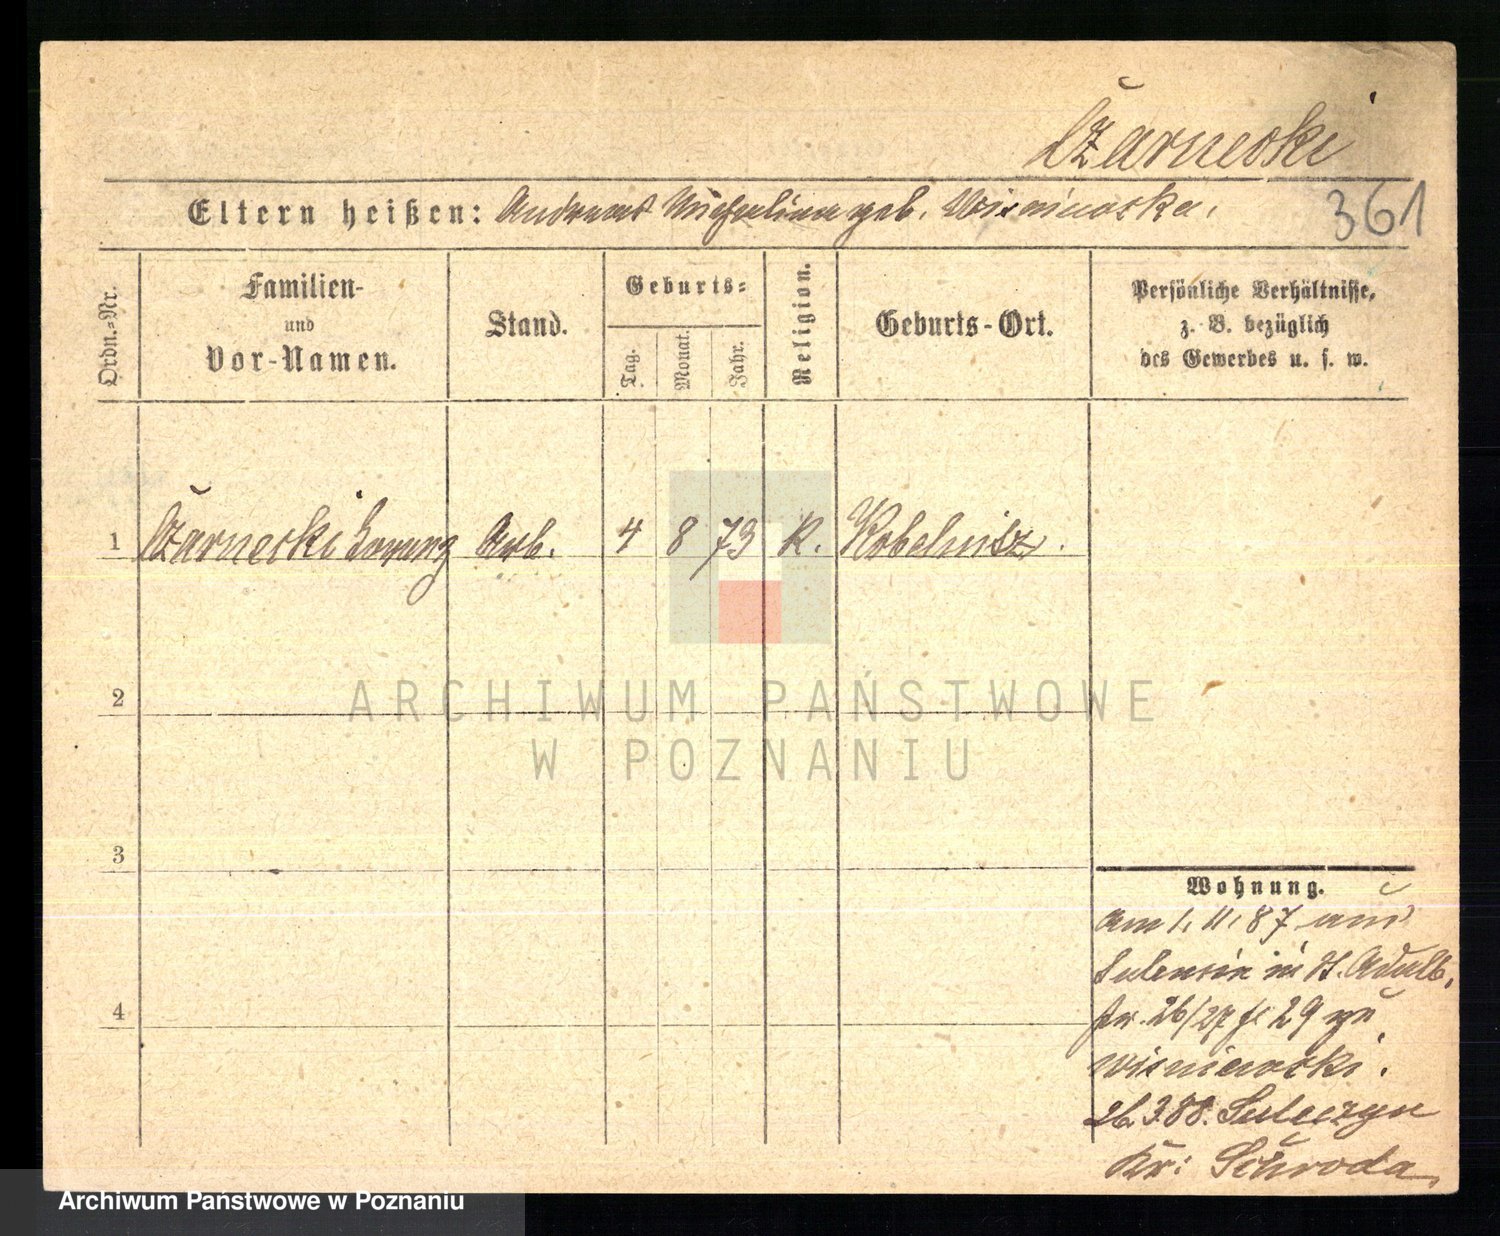 Czarnecki
Eltern heißen: Andreas Michalina geb. Wisniewska.
361
Ordn.-Nr.
Familien-
und
Vor-Namen.
Stand.
Geburts-
Tag.
Monat.
Jahr.
Religion.
Geburts-Ort.
Persönliche Verhältnisse,
z. B. bezüglich
des Gewerbes u. s. w.
1 Czarnecki Lorenz Arb. 4 8 73 K. Kobelnisz.
2
3
4
Wohnung.
am 1. 11. 87 aus
in H. Adalb.
str. 26/27 29 zu
Wisniewski.
26. 3. 88. Suleczyn
Kr: Schroda.
ARCHIWUM PAŃSTWOWE
W POZNANIU
Archiwum Państwowe w Poznaniu